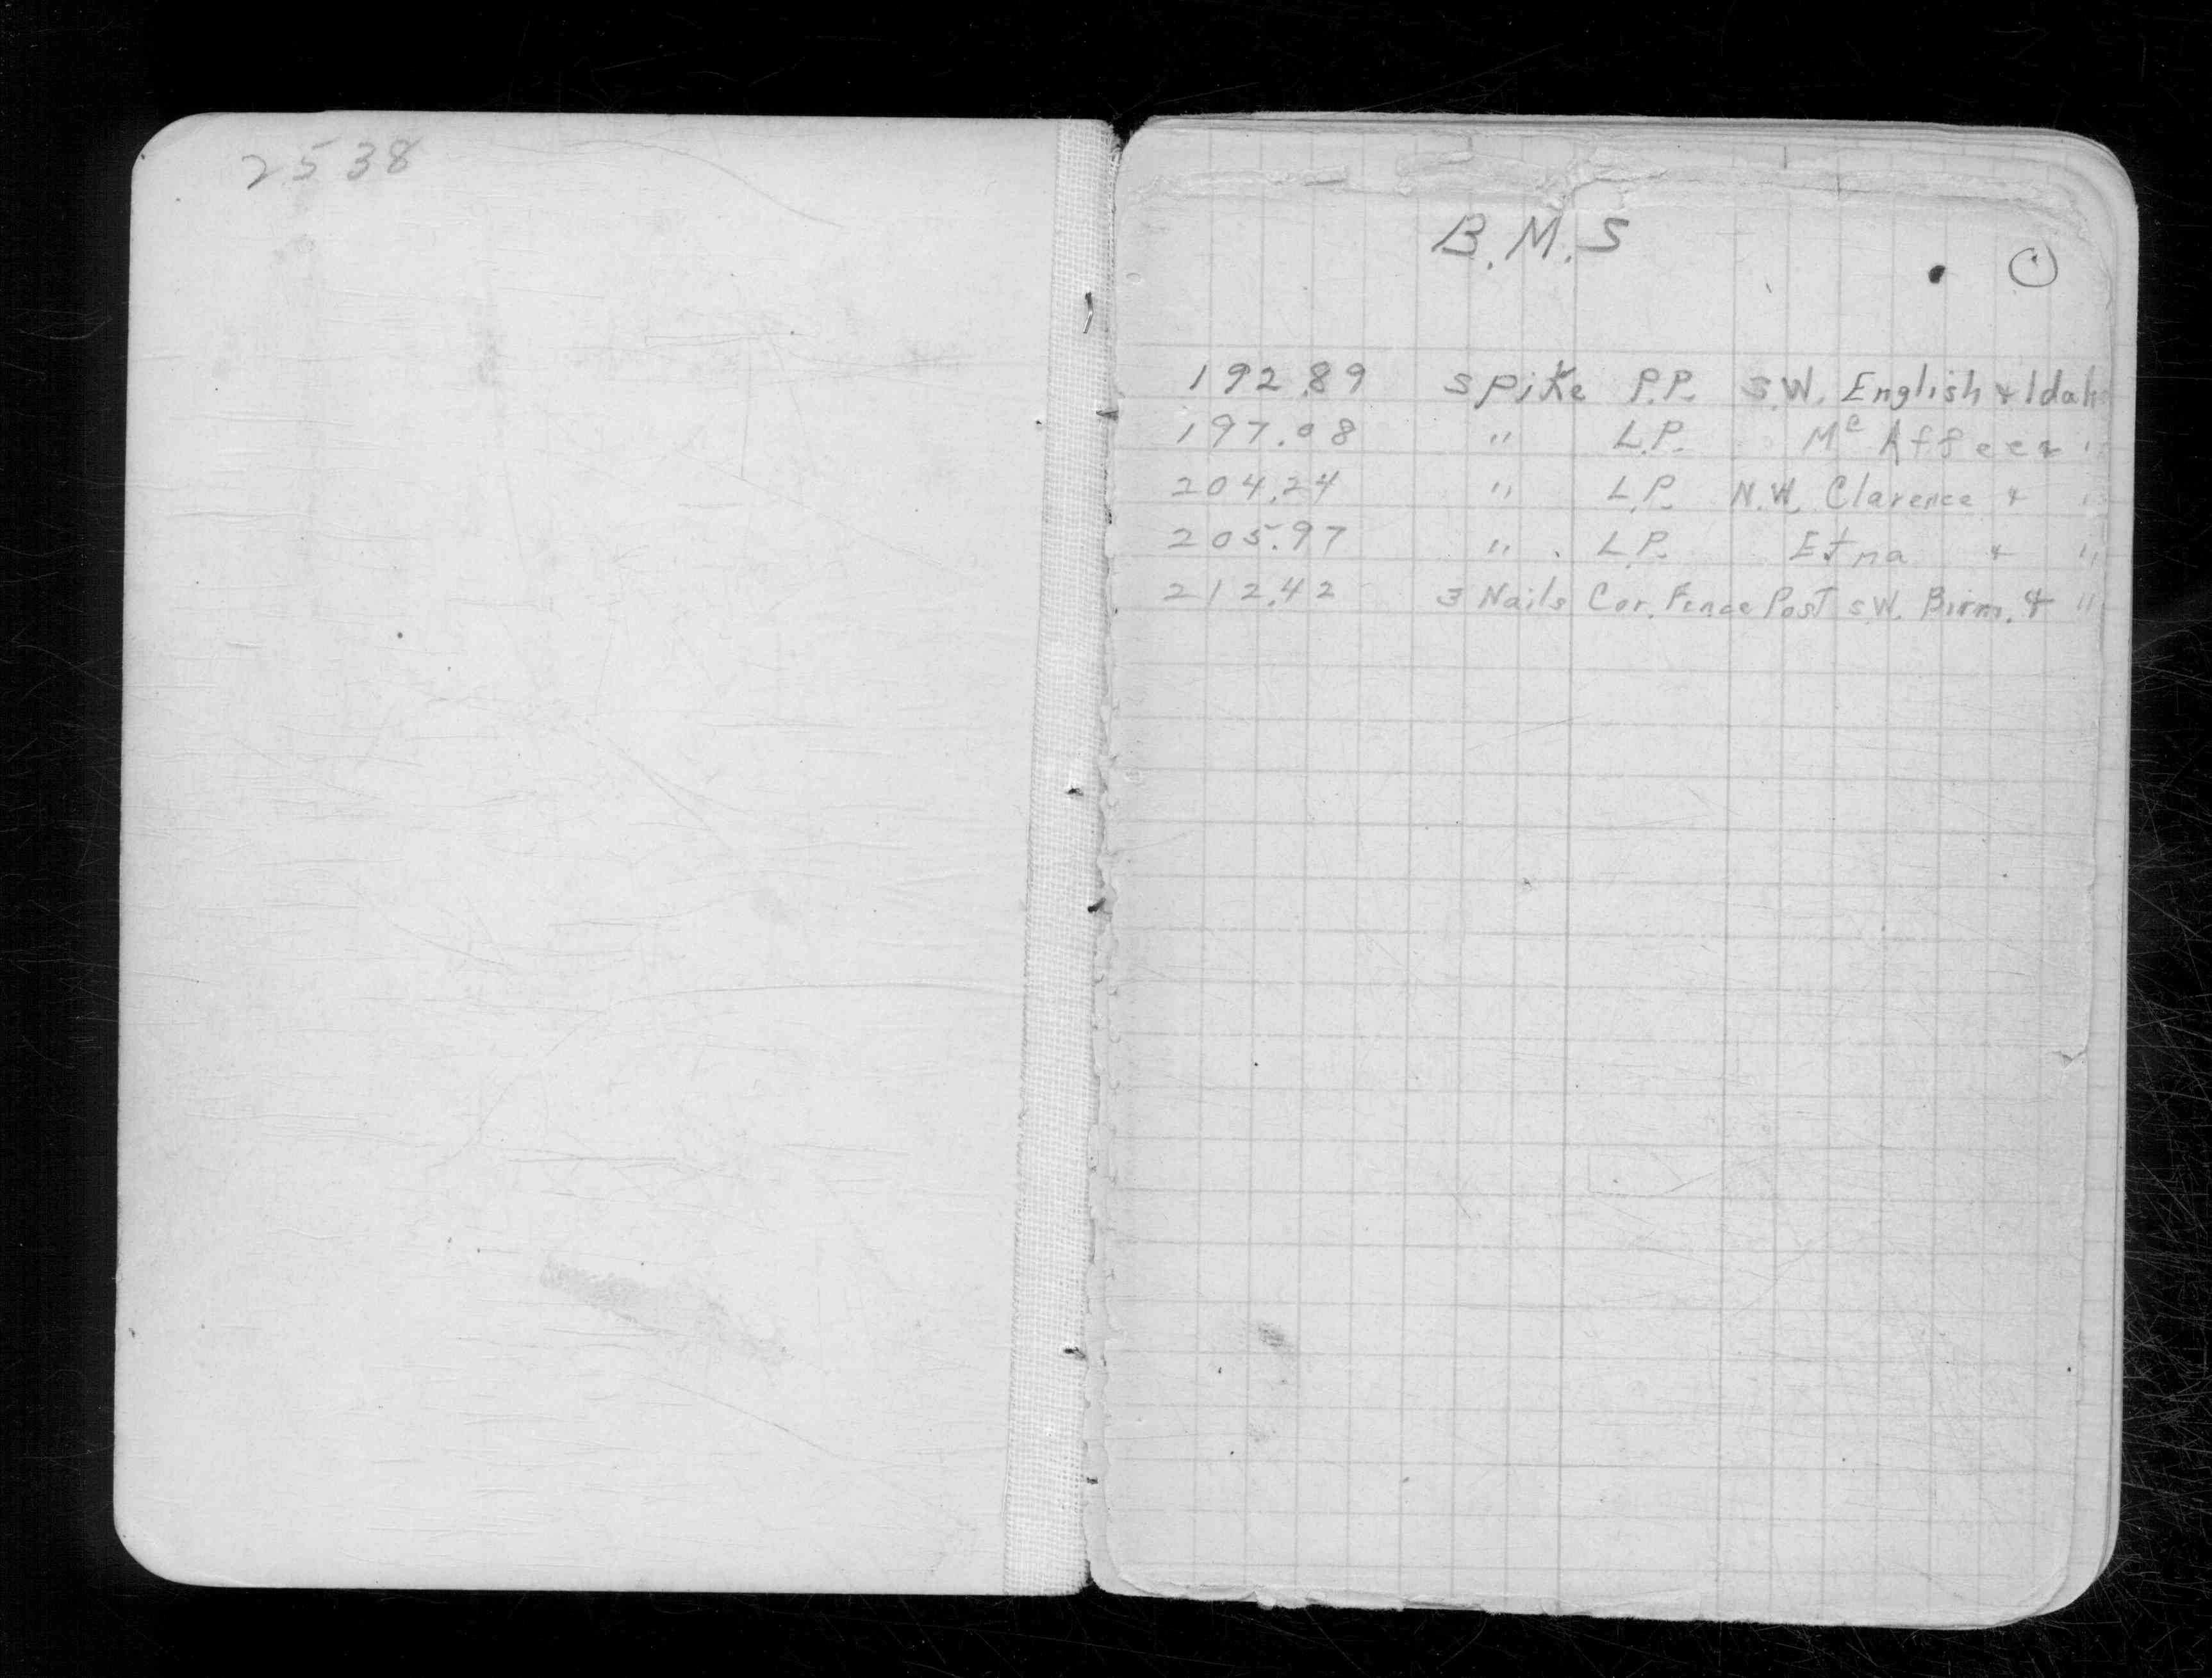 2538
B.M.S
1
192.89 Spike P.P. S.W. English & Idaho
197.08 " L.P. Mc Affee & "
204.24 " L.P. N.W. Clarence & "
205.97 " L.P. Etna & "
212.42 3 Nails Cor. Fence Post S.W. Birm. & "